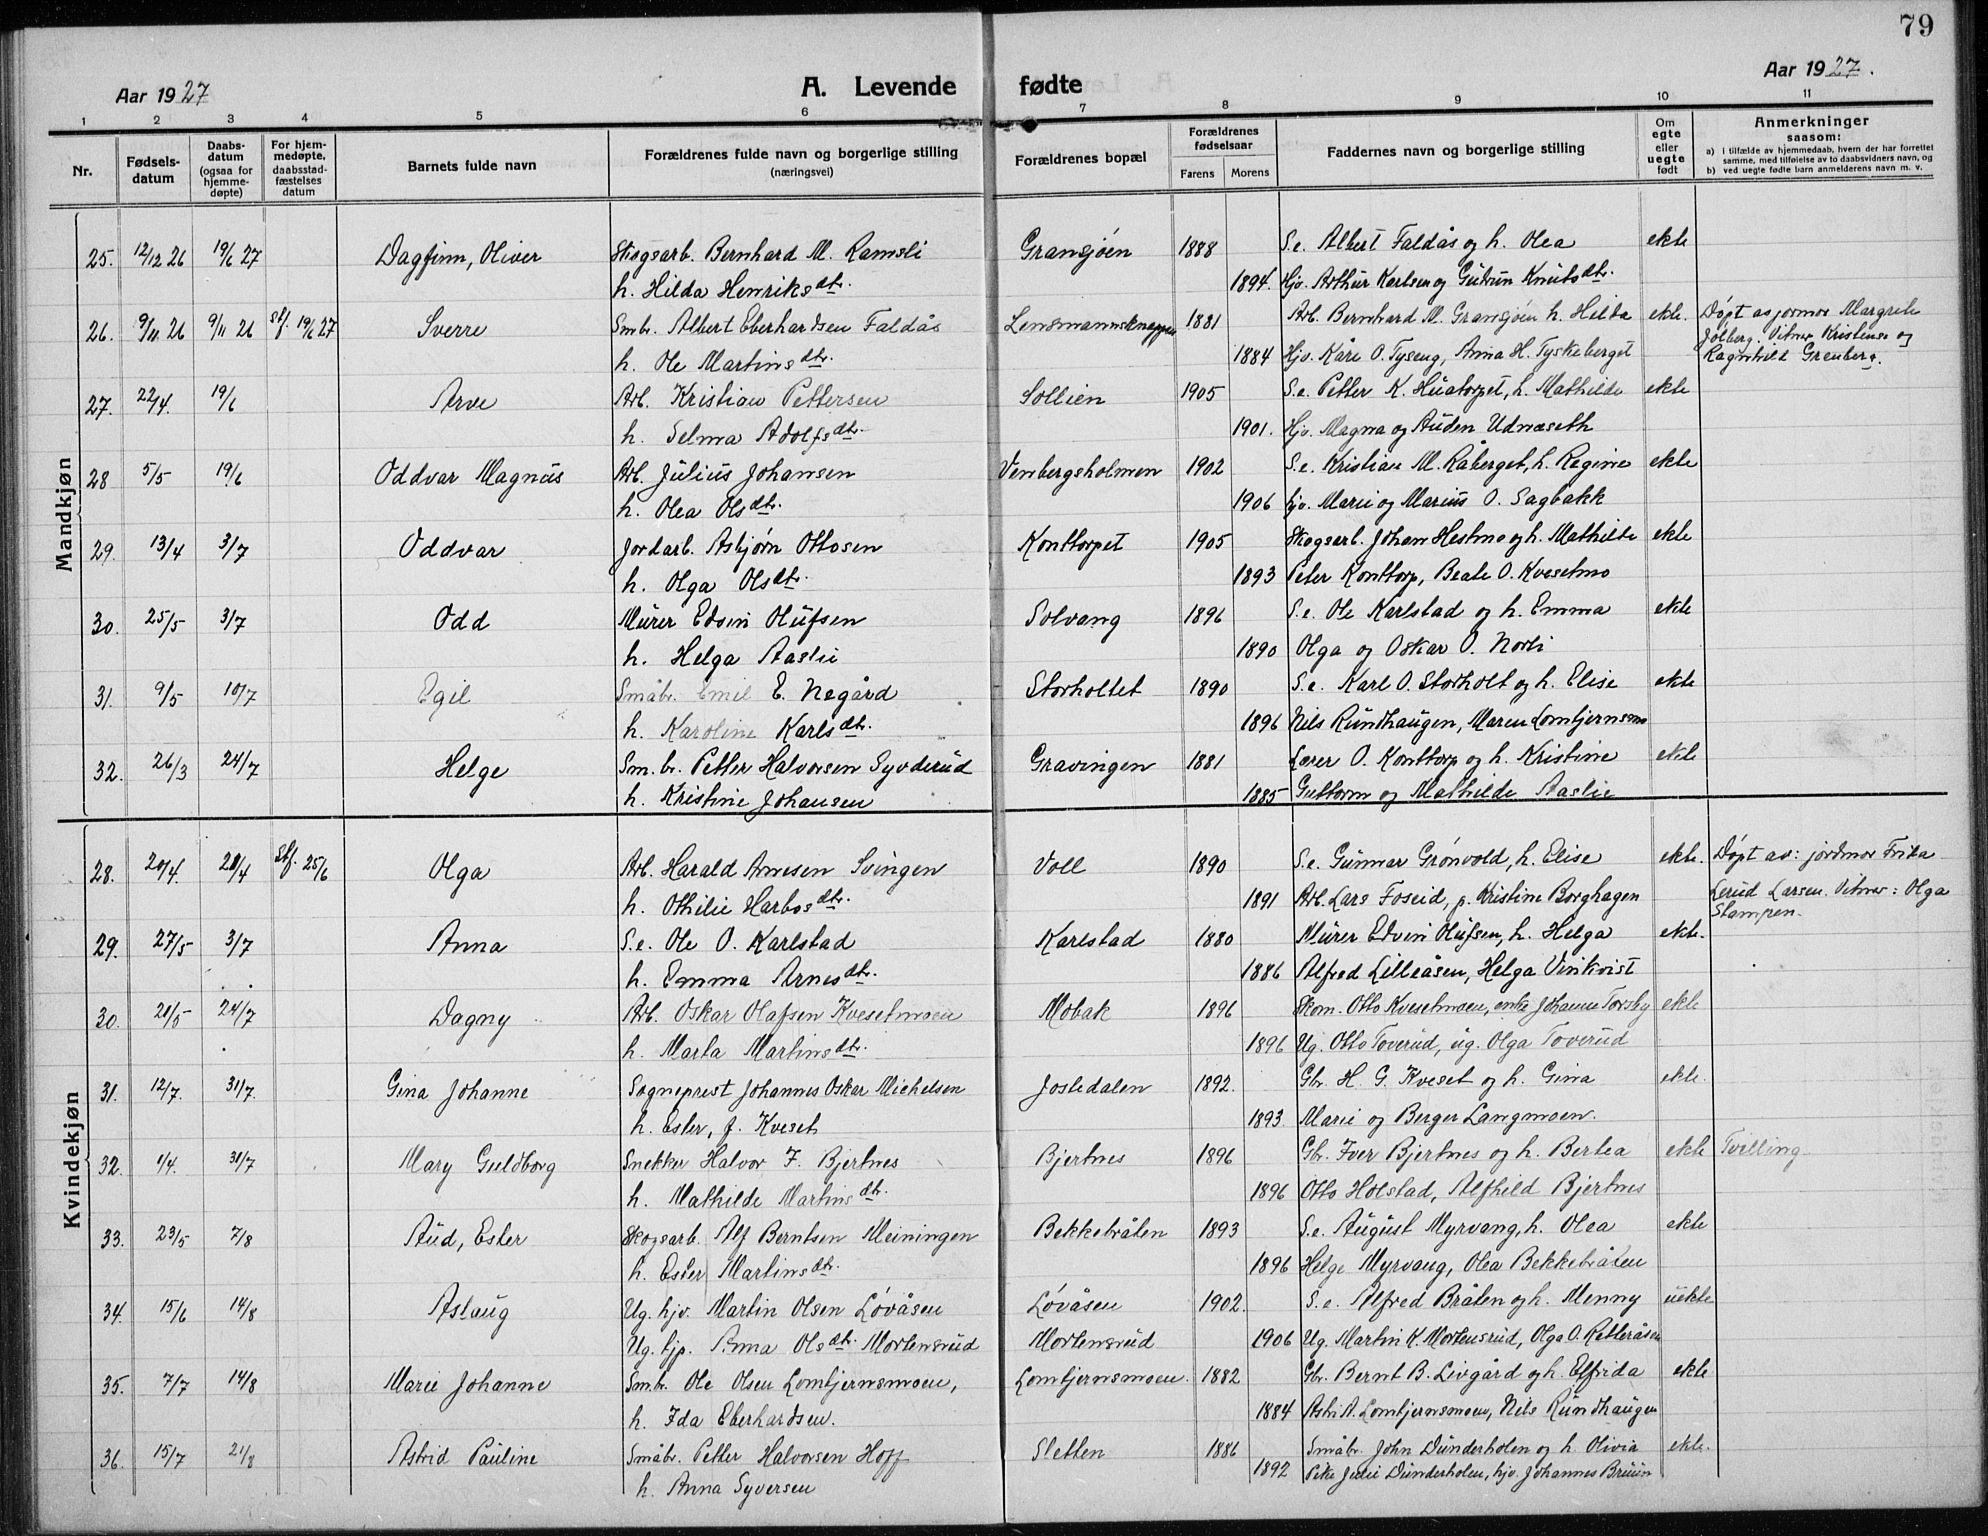 79
Aar 1927
A. Levende fødte
Aar 1927.
1 2 3 4 5 6 7 8 9 10 11
Nr.
Fødsels-datum
Daabs-datum (ogsaa for hjemme-døpte)
For hjem-medøpte, daabsstad-fæstelses datum
Barnets fulde navn
Forældrenes fulde navn og borgerlige stilling (næringsvei)
Forældrenes bopæl
Forældrenes fødselsaar
Farens Morens
Faddernes navn og borgerlige stilling
Om egte eller uegte født
Anmerkninger saasom:
a) i tilfælde av hjemmedaab, hvem der har forrettet samme, med tilføielse av to daabsvidners navn, og
b) ved uegte fødte barn anmelderens navn m. v.
Mandkjøn
25. 12/12 26 19/6 27 Dagfinn, Oliver Skogsarb. Bernhard M. Ramsli Gransjøen 1888 S.e. Albert Faldås og h. Olea ekte
h. Hilda Henriksdtr. 1894. Hjv. Arthur Karlsen og Gudrun Knutsdtr.
26. 9/11 26 9/11 26 stf. 19/6 27 Sverre Smbr. Albert Eberhardsen Faldås Lensmannsknappen 1881 Arb. Bernhard M. Gransjøen h. Hilda ekte. Døpt av jormor Margrete
h. Ole Martinsdtr. 1884 Hjv. Kåre O. Tyseng, Anna H. Tyskeberget Jølberg. Vitner Kristense og
Ragnhild Grenberg.
27. 22/4. 19/6 Arve Arb. Kristian Pettersen Sollien 1905 S.e. Petter K. Huatorpet, h. Mathilde ekte
h. Selma Adolfsdtr. 1901. Hjv. Magna og Auden Udnæseth
28 5/5 19/6 Oddvar Magnus Arb. Julius Johansen Venbergsholmen 1902 S.e. Kristian M. Råberget, h. Regine ekte
h. Olea Olsdtr. 1906 hjv. Marie og Marius O. Sagbakk
29. 13/4 3/7 Oddvar Jordarb. Asbjørn Ottosen Konttorpet 1905 Skogsarb. Johan Hestmo og h. Mathilde ekte
h. Olga Olsdtr. 1893 Peter Konttorp, Beate O. Kvesetmo
30. 25/5 3/7 Odd Murer Edvin Olufsen Solvang 1896 S.e. Ole Karlstad og h. Emma ekte
h. Helga Aaslie 1890 Olga og Oskar O. Norli
31. 9/5 10/7 Egil Småbr. Emil E. Negård Storholtet 1890 S.e. Karl O. Storholt og h. Elise ekte
h. Karoline Karlsdtr. 1896 Nils Rundhaugen, Maren Lomtjernsmo
32. 26/3 24/7 Helge Sm.br. Petter Halvorsen Syvderud Gravingen 1881 Lærer O. Konttorp og h. Kristine ekte
h. Kristine Johansen 1885 Guttorm og Mathilde Aaslie
Kvindekjøn
28. 20/4. 20/4 Stf. 25/6 Olga Arb. Harald Arnesen Svingen Voll 1890 S.e. Gunnar Grønvold, h. Elise ekte. Døpt av: jordmor Frika
h. Othilie Harbosdtr. 1891 Arb. Lars Foseid, p. Kristine Borghagen Lerud Larsen. Vitner: Olga
Stampen.
29. 27/5 3/7 Anna S.e. Ole O. Karlstad Karlstad 1880 Murer Edvin Olufsen, h. Helga ekte.
h. Emma Arnesdtr. 1886 Alfred Lilleåsen, Helga Vinkvist
30. 20/5 24/7 Dagny Arb. Oskar Olafsen Kvesetmoen Mobak 1896 Skom. Otto Kvesetmoen, enke Johanne Torsby ekte
h. Marta Martinsdtr. 1896 Ug. Otto Toverud, ug. Olga Toverud
31. 12/7. 31/7. Gina Johanne Sogneprest Johannes Oskar Michelsen Jostedalen 1892. Gbr. H. G. Kveset og h. Gina ekte.
h. Ester, f. Kveset 1893 Marie og Berger Langmoen.
32. 1/4. 31/7 Mary Guldborg Snekker Halvor F. Bjertnes Bjertnes 1896 Gbr. Iver Bjertnes og h. Bertea ekte Tvilling
h. Mathilde Martinsdtr. 1896 Otto Holstad, Alfhild Bjertnes
33. 23/5 7/8 Aud, Ester Skogsarb. Alf Berntsen Meiningen Bekkebråten 1893 S.e. August Myrvang, h. Olea ekte
h. Ester Martinsdtr. 1896 Helge Myrvang, Olea Bekkebråten
34. 15/6 14/8 Aslaug Ug. hjv. Martin Olsen Løvåsen Løvåsen 1902. S.e. Alfred Bråten og h. Menny uekte
Ug. tjp. Anna Olsdtr. Mortensrud Mortensrud 1906 Ug. Martin K. Mortensrud, Olga O. Ratteråsen
35. 7/7 14/8 Marie Johanne Smbr. Ole Olsen Lomtjernsmoen, Lomtjernsmoen. 1882 Gbr. Bernt B. Livgård og h. Elfrida ekte
h. Ida Eberhardsen. 1884 Astri A. Lomtjernsmoen, Nils Rundhaugen
36. 15/7 21/8 Astrid Pauline Småbr. Petter Halvorsen Hoff Sletten 1886 Småbr. John Dunderholen og h. Olivia ekte.
h. Anna Syversen 1892 Pike Julie Dunderholen, hjv. Johannes Bruun